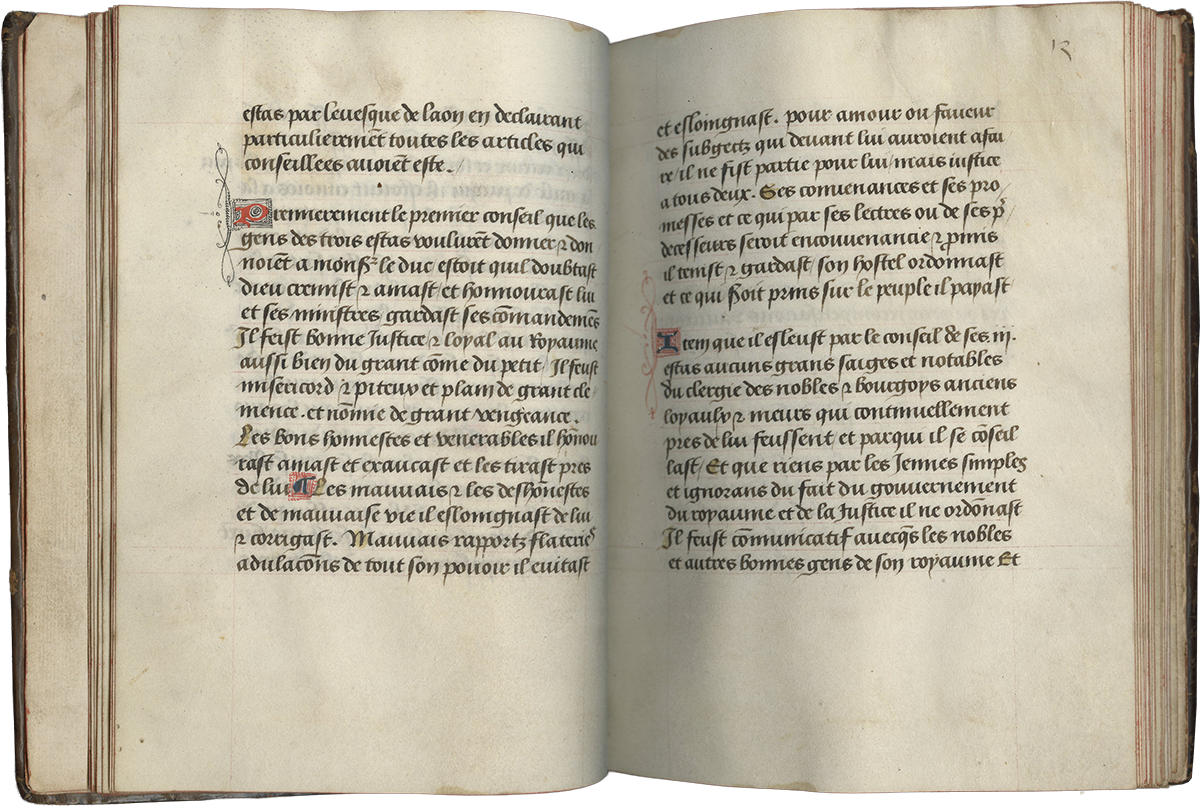 estas par levesque de laon en declairant
particulieremēt toutes les articles qui
conseillees avoiēt este.
Premierement le premier conseil que les
gens des trois estas voulurēt donner ⁊ don
noiēt a monsr le duc estoit quil doubtast
dieu cremist ⁊ amast / et honnourast lui
et ses ministres / gardast ses cōmandemēs
Il feist bonne Justice ⁊ loyal au Royaume
aussi bien du grant cōme du petit / Il feust
misericord ⁊ piteux et plain de grant cle
mence. et nōmie de grant vengeance.
Les bons honnestes et venerables il hōnou
rast amast et exaucast et les tirast pres
de lui Les mauvais ⁊ les deshōnestes
et de mauvaise vie il esloingnast de lui
⁊ corrigast. Mauvais rapportz flateries
adulacōns de tout son povoir il evitast
13
et esloingnast. pour amour ou faveur
des subgectz qui devant lui auroient afai
re / il ne fist partie pour lui / mais iustice
a tous deux. Ses convenances et ses pro
messes et ce qui par ses lectres ou de ses p̄
decesseurs seroit encouvenancie ⁊ p̄mis
il tenist ⁊ gardast / son hostel ordonnast
et ce qui s̄oit prins sur le peuple il payast
Item que il esleust par le conseil de ses iij.
estas aucuns grans saiges et notables
du clergie des nobles ⁊ bourgoys anciens
loyaulx ⁊ meurs qui continuellement
pres de lui feussent / et par qui il se cōseil
last / Et que riens par les Jennes simples
et ignorans du fait du gouvernement
du royaume et de la Justice il ne ordōnast
Il feust cōmunicatif avecq̄s les nobles
et autres bonnes gens de son royaume Et